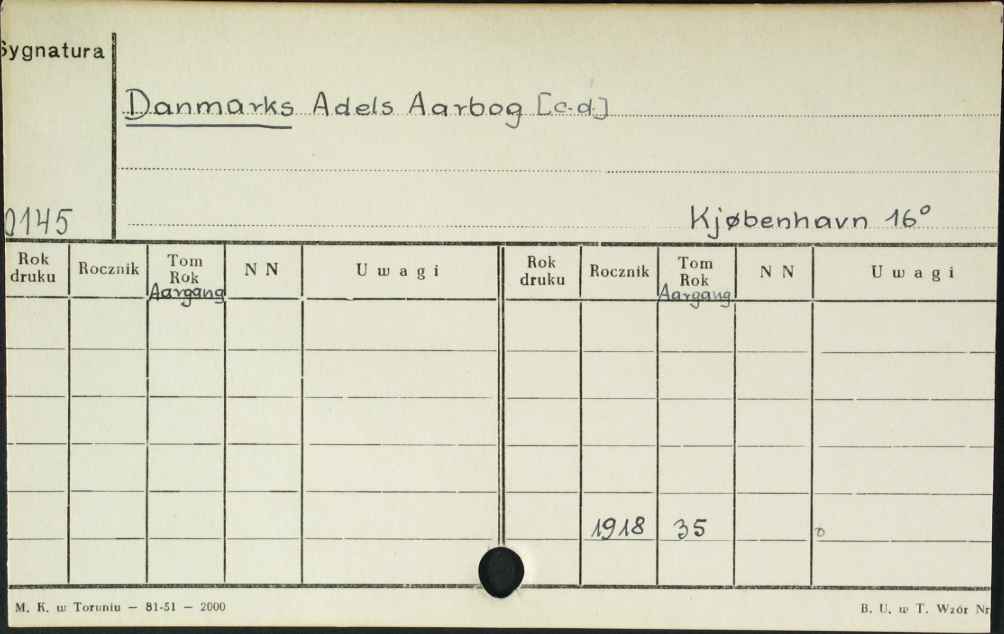 Sygnatura
Danmarks Adels Aarbog [c.d.]
0145
Kjøbenhavn 16°
Rok druku Rocznik Tom Rok Aargang N N Uwagi Rok druku Rocznik Tom Rok Aargang N N Uwagi
1918 35
M. K. w Toruniu – 81-51 – 2000 B. U. w T. Wzór Nr